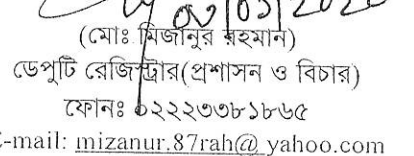 ০৫/০১/২০২০
(মোঃ মিজানুর রহমান)
ডেপুটি রেজিস্ট্রার(প্রশাসন ও বিচার)
ফোনঃ ০২২২৩৩৮১৮৬৫
E-mail: mizanur.87rah@ yahoo.com